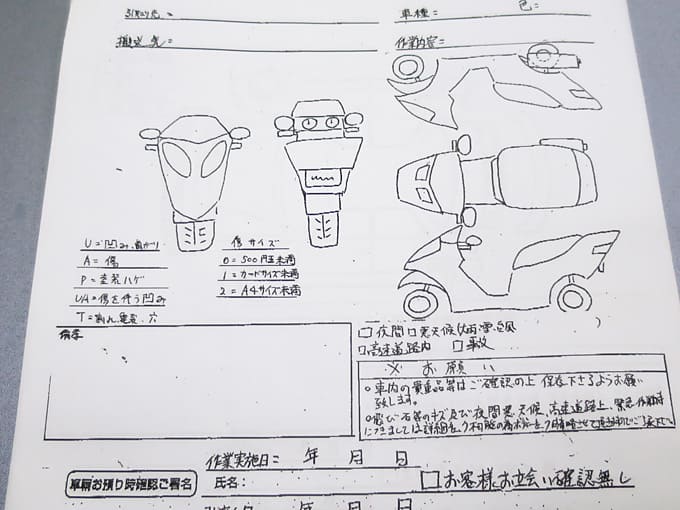 引取り先=
車種=
色=
搬送先=
作業内容=
U=凹み、曲がり
A=傷
P=塗装ハゲ
UA=傷を伴う凹み
T=割れ、亀裂、穴
傷サイズ
0=500円玉未満
1=カードサイズ未満
2=A4サイズ未満
備考
□夜間 □悪天候(雨・雪・台風
□高速道路内 □事故
※ お願い
○車内の貴重品等はご確認の上 保管下さるようお願い
致します。
○飛び石等のキズ及び夜間、悪天候、高速道路上、緊急作業時
につきましては詳細
作業実施日= 年 月 日
車輌お預り時確認ご署名
氏名:
□お客様お立会い確認無し